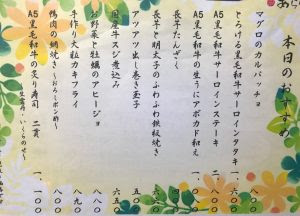 本日のおすすめ
マグロのカルパッチョ 八〇〇
とろける黒毛和牛サーロインタタキ 一、六〇〇
A5黒毛和牛サーロインステーキ 二、八〇〇
A5黒毛和牛の生うにアボカド和え 一、
長芋たんざく
長芋と明太子のふわふわ鉄板焼き
アツアツ出し巻き玉子 六五〇
国産牛スジ煮込み
お野菜と牡蠣のアヒージョ
手作り大粒カキフライ 八九〇
鴨肉の網焼き 〜おろしポン酢〜 八〇〇
A5黒毛和牛の炙り寿司 二貫 一、一〇〇